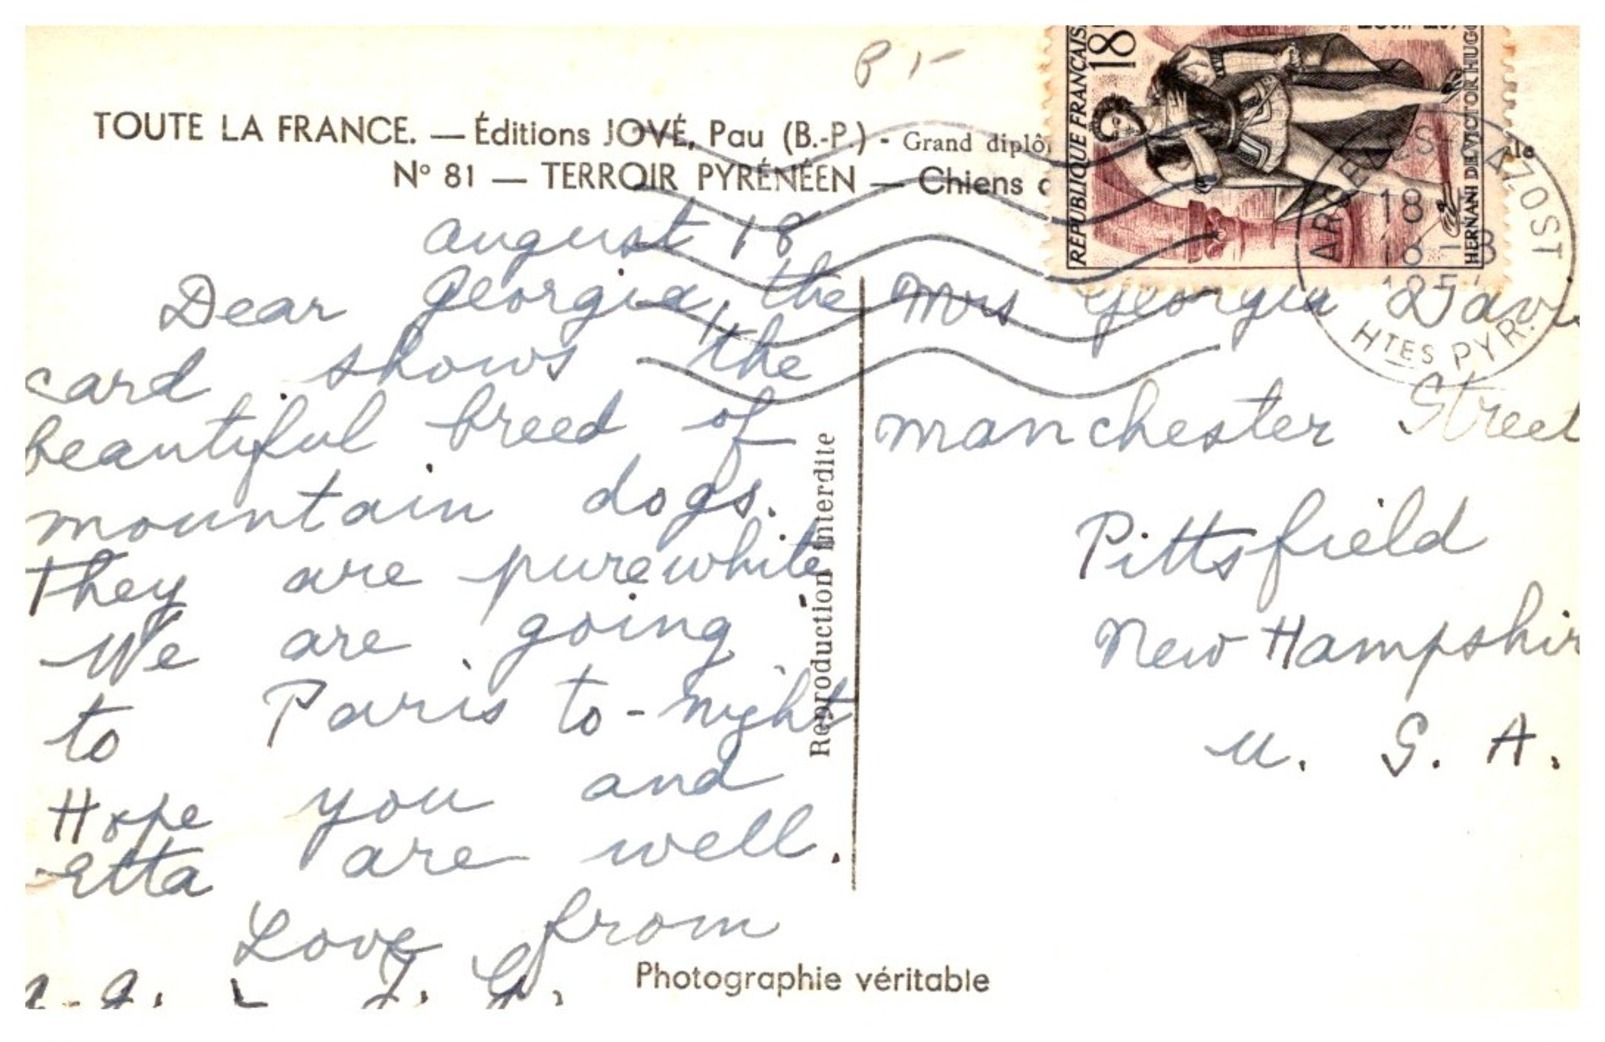 P 1-
TOUTE LA FRANCE. — Éditions JOVÉ, Pau (B.-P.) - Grand diplô
N° 81 — TERROIR PYRÉNÉEN — Chiens
RÉPUBLIQUE FRANÇAISE
18
HERNANI DE VICTOR HUGO
AZOST
18
HTES PYR.
august 18
Dear Georgia, the
card shows the
beautiful breed of
mountain dogs.
They are purewhite.
We are going
to Paris to-night
Hope you and
Etta are well.
Love from
J. G.
Reproduction Interdite
Mrs Georgia Davi
Manchester Street
Pittsfield
New Hampshir
U. S. A.
Photographie véritable